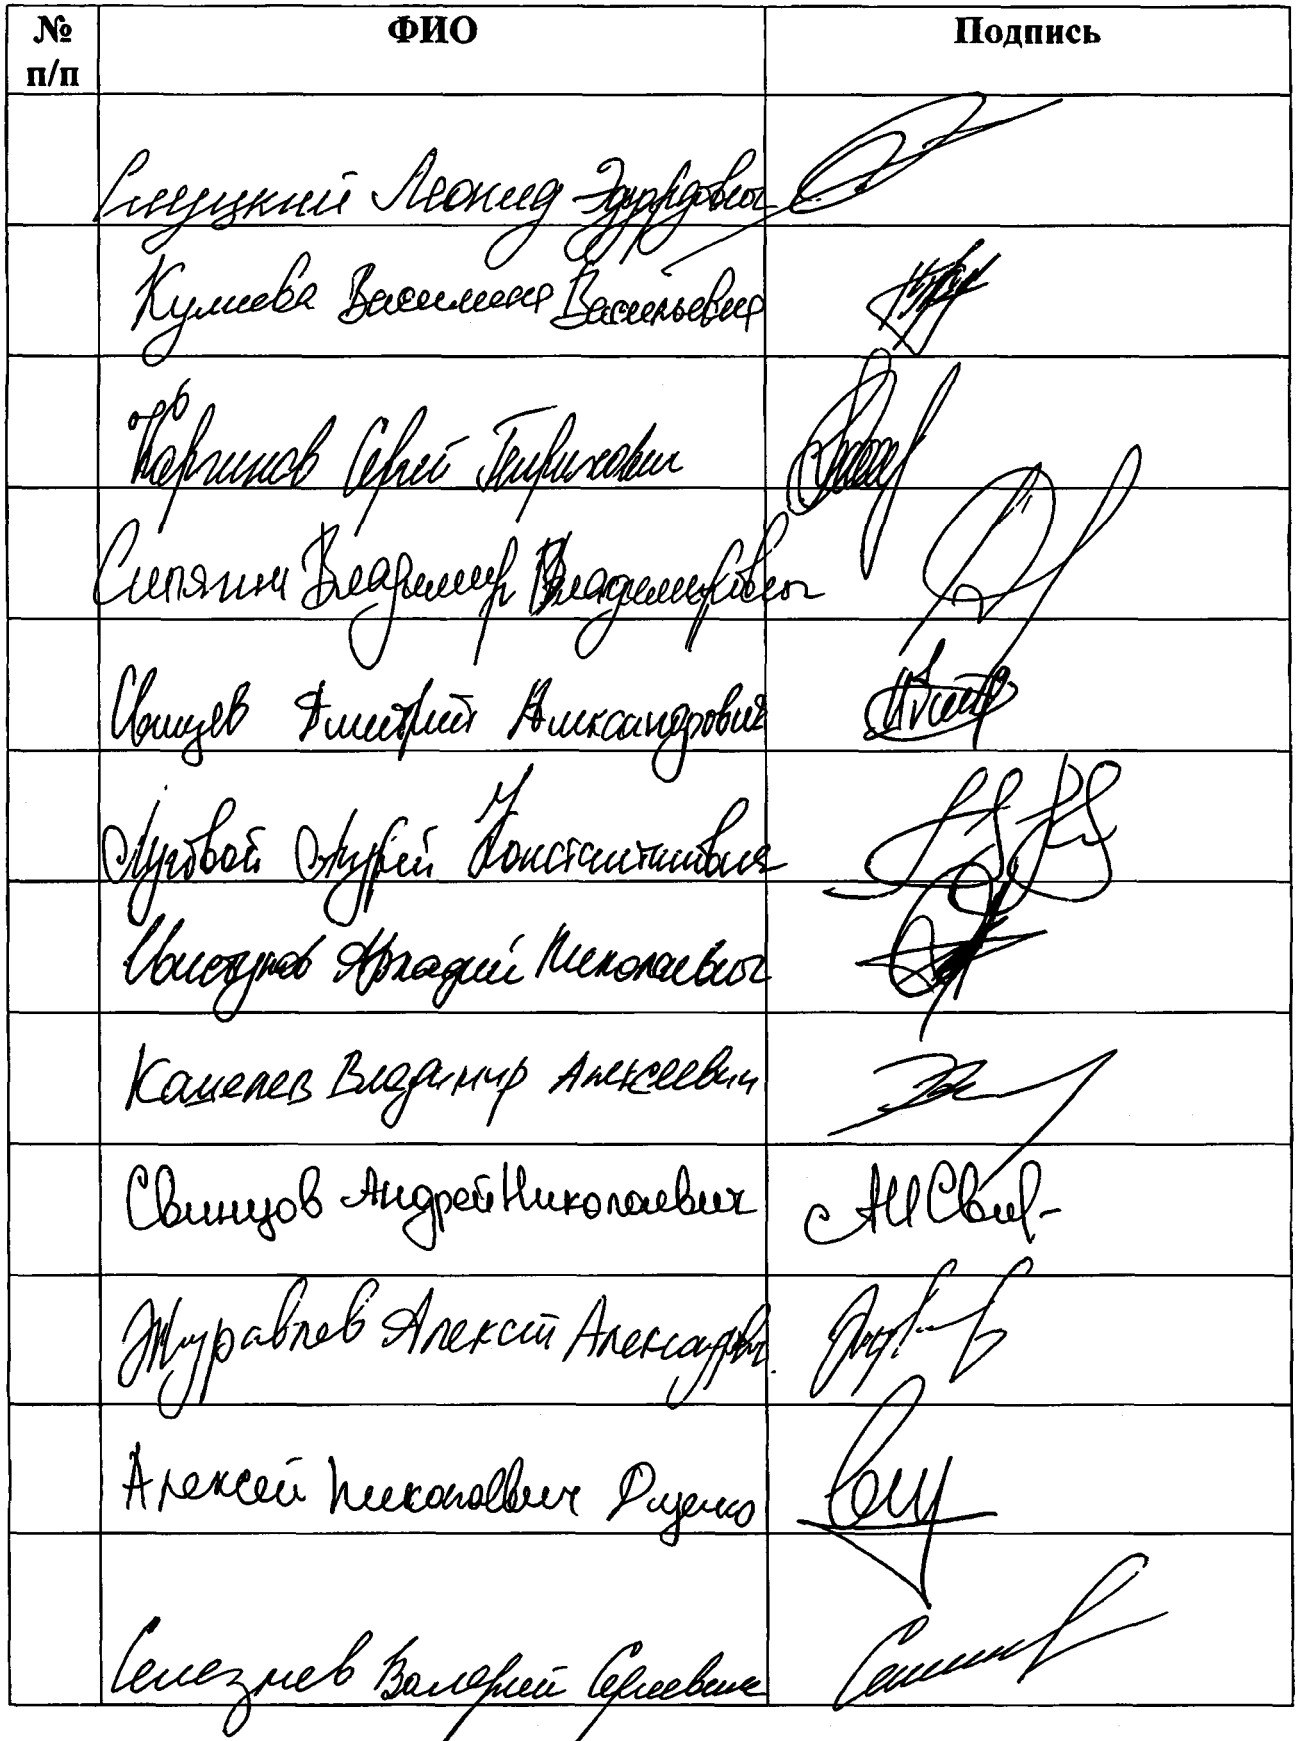 № п/п ФИО Подпись
Слуцкий Леонид Эдуардович
Кулиева Василина Васильевна
Каргинов Сергей Генрихович
Сипягин Владимир Владимирович
Свищев Дмитрий Александрович
Луговой Андрей Константинович
Свистунов Аркадий Николаевич
Кошелев Владимир Алексеевич
Свинцов Андрей Николаевич АНСвин-
Журавлев Алексей Александрович
Алексей Николаевич Диденко
Селезнев Валерий Сергеевич